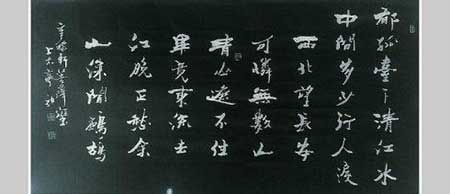 郁孤臺下清江水
中間多少行人淚
西北望長安
可憐無數山
青山遮不住
畢竟東流去
江晚正愁余
山深聞鷓鴣
辛稼軒菩薩蠻